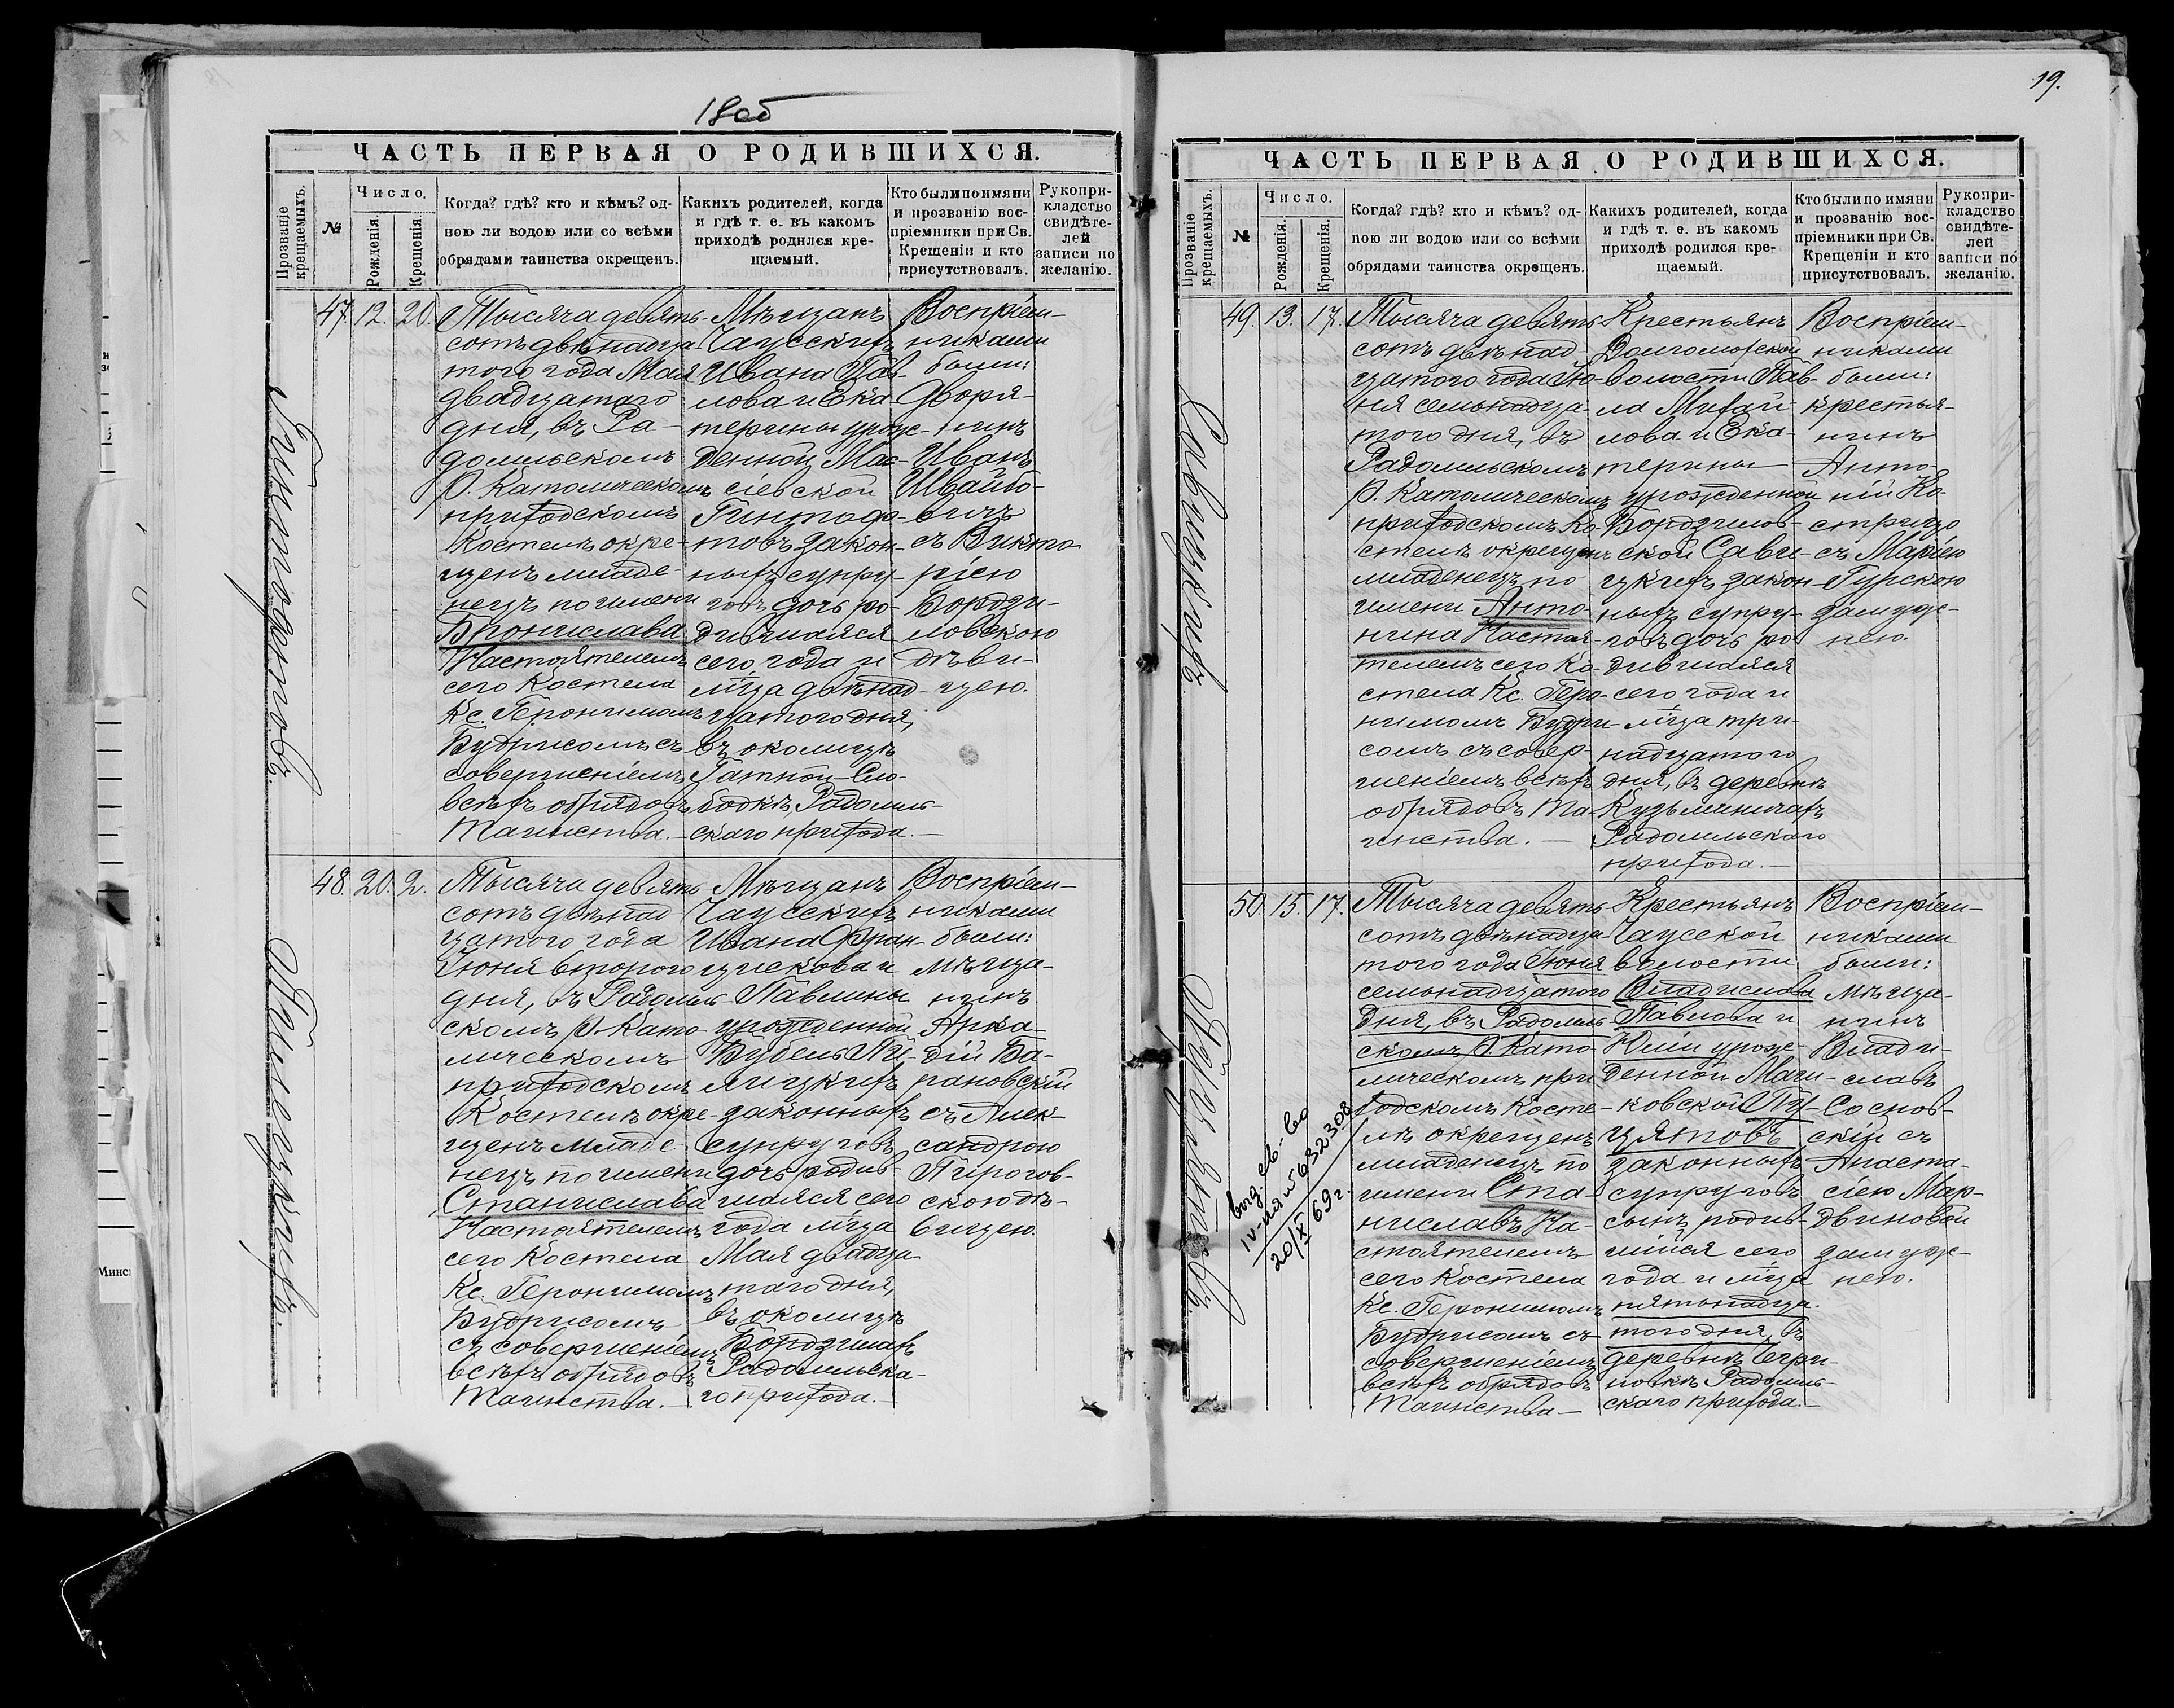 18об
ЧАСТЬ ПЕРВАЯ О РОДИВШИХСЯ.
Прозваніе крещаемыхъ.
№
Число.
Рожденія.
Крещенія.
Когда? гдѣ? кто и кѣмъ? од-
ною ли водою или со всѣми
обрядами таинства окрещенъ.
Какихъ родителей, когда
и гдѣ т. е. въ какомъ
приходѣ родился кре-
щаемый.
Кто были по имяни
и прозванію вос-
пріемники при Св.
Крещеніи и кто
присутствовалъ.
Рукопри-
кладство
свидѣте-
лей
записи по
желанію.
Гинтовтовъ.
47. 12. 20.
Тысяча девять-
сотъ двѣнадца-
того года Мая
двадцатаго
дня, въ Ра-
домльскомъ
Р. Католическомъ
приходскомъ
Костелѣ окре-
щенъ младе-
нецъ по имени
Бронислава
Настоятелемъ
сего Костела
Кс. Геронимомъ
Будрисомъ съ
совершеніемъ
всѣхъ обрядовъ
Таинства.—
Мѣщанъ
Чаусскихъ
Ивана Пав-
лова и Ека-
терины урож-
денной Мас-
сіевской
Гинтов-
товъ закон-
ныхъ супру-
говъ дочь ро-
дившаяся
сего года и
м-ца двѣнад-
цатого дня,
въ околицѣ
Гатной-Сло-
бодкѣ, Радомль-
скаго прихода.—
Воспріем-
никами
были:
Дворя-
нинъ
Иванъ
Швайбо-
вичъ
съ Викто-
ріею
Бордзи-
ловскою
дѣви-
цею.
Пилецкихъ.
48. 20. 2.
Тысяча девять
сотъ двѣнад
цатого года
Іюня второго
дня, въ Радомль
скомъ Р. Като-
лическомъ
приходскомъ
Костелѣ окре-
щенъ младе-
нецъ по имени
Станислава
Настоятелемъ
сего Костела
Кс. Геронимомъ
Будрисомъ
съ совершеніемъ
всѣхъ обрядовъ
Таинства.—
Мѣщанъ
Чаусскихъ
Ивана Фран-
цискова и
Павлины
урожденной
Бубель Пи-
лицкихъ
законныхъ
супруговъ
дочь родив-
шаяся сего
года м-ца
Мая двадца-
таго дня,
въ околицѣ
Бордзилахъ
Радомльска-
го прихода.—
Воспріем-
никами
были:
мѣща-
нинъ
Арка-
дій Ба-
рановскій
съ Алек-
сандрою
Пирогов-
скою дѣ-
вицею.
19.
ЧАСТЬ ПЕРВАЯ О РОДИВШИХСЯ.
Прозваніе крещаемыхъ.
№
Число.
Рожденія.
Крещенія.
Когда? гдѣ? кто и кѣмъ? од-
ною ли водою или со всѣми
обрядами таинства окрещенъ.
Какихъ родителей, когда
и гдѣ т. е. въ какомъ
приходѣ родился кре-
щаемый.
Кто были по имяни
и прозванію вос-
пріемники при Св.
Крещеніи и кто
присутствовалъ.
Рукопри-
кладство
свидѣте-
лей
записи по
желанію.
Савицкихъ.
49. 13. 17.
Тысяча девять
сотъ двѣнад-
цатого года Ію-
ня семьнадца-
того дня, въ
Радомльскомъ
Р. Католическомъ
приходскомъ Ко-
стелѣ окрещенъ
младенецъ по
имени Анто-
нина Настоя-
телемъ сего Ко-
стела Кс. Геро-
нимомъ Будри-
сомъ съ совер-
шеніемъ всѣхъ
обрядовъ Та-
инства.—
Крестьянъ
Долгоморской
волости Пав-
ла Михай-
лова и Ека-
терины
урожденной
Бордзилов-
ской Сави-
цкихъ закон-
ныхъ супру-
говъ дочь ро-
дившаяся
сего года и
м-ца три-
надцатого
дня, въ деревнѣ
Кузьминичахъ
Радомльскаго
прихода.—
Воспріем-
никами
были:
крестья-
нинъ
Анто-
ній Ко-
стрицо
съ Маріею
Гурскою
замуж-
нею.
Пуцятовъ.
50. 15. 17.
Тысяча девять-
сотъ двѣнадца-
того года Іюня
семьнадцатого
дня, въ Радомль-
скомъ Р. Като-
лическомъ при
ходскомъ Косте-
лѣ окрещенъ
младенецъ по
имени Ста-
ниславъ На-
стоятелемъ
сего Костела
Кс. Геронимомъ
Будрисомъ съ
совершеніемъ
всѣхъ обрядовъ
Таинства—
Крестьянъ
Чаусской
волости
Владислава
Павлова и
Юліи урож-
денной Мачи-
ковской Пу-
цятовъ
законныхъ
супруговъ
сынъ родив-
шійся сего
года и м-ца
пятьнадца-
того дня, въ
деревнѣ Чери-
новкѣ Радомль-
скаго прихода.—
Воспріем-
никами
были:
мѣща-
нинъ
Влади-
славъ
Соснов-
скій съ
Анаста-
сіею Мар-
двиновой
замуж-
нею.
выд. св-во
IV-ИЯ № 632308
20/X 69г.